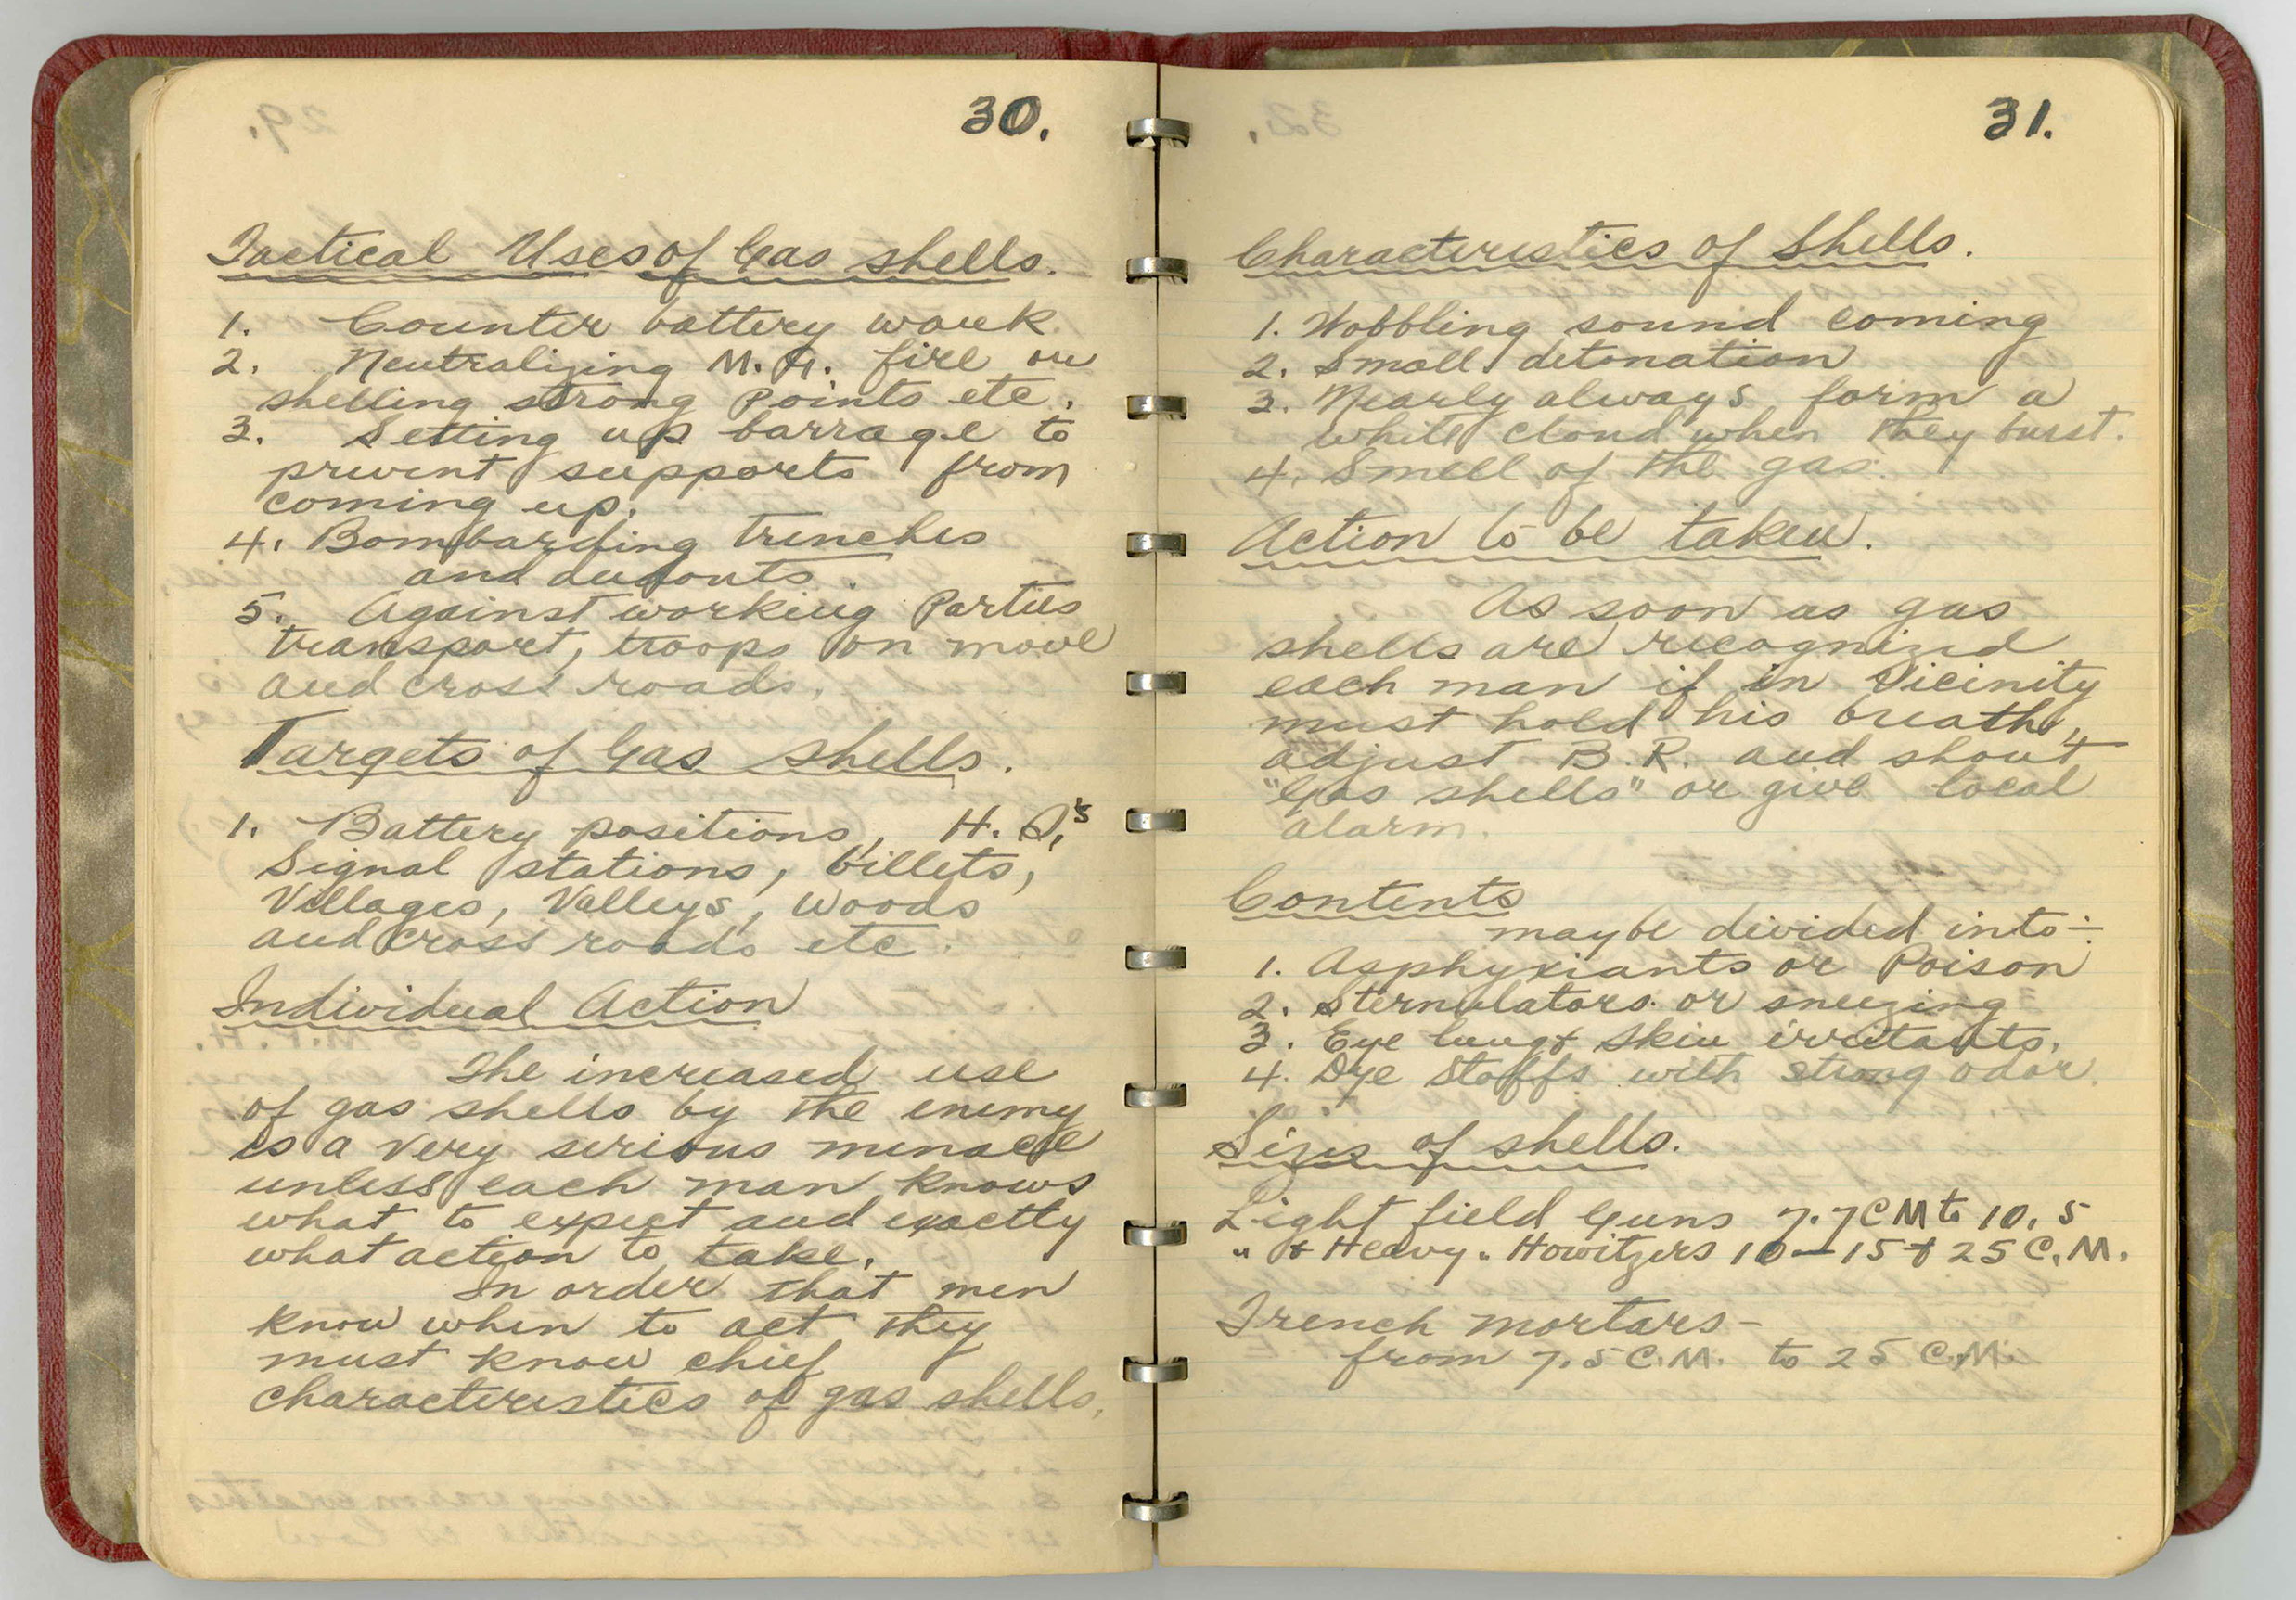 30.
Tactical Uses of Gas shells.
1. Counter battery work.
2. Neutralizing M.G. fire on
shelling strong Points etc.
3. Setting up barrage to
prevent supports from
coming up.
4. Bombarding trenches
and dugouts.
5. Against working Parties
transport, troops on move
and cross roads.
Targets of Gas shells.
1. Battery positions, H.Q.'s
Signal stations, billets,
Villages, Valleys, Woods
and cross roads etc.
Individual Action
The increased use
of gas shells by the enemy
is a very serious menace
unless each man knows
what to expect and exactly
what action to take.
In order that men
know when to act they
must know chief
characteristics of gas shells.
31.
Characteristics of Shells.
1. Wobbling sound coming
2. Small detonation
3. Nearly always form a
white cloud when they burst.
4. Smell of the gas.
Action to be taken.
As soon as gas
shells are recognized
each man if in Vicinity
must hold his breath,
adjust B.R. and shout
"Gas shells" or give local
alarm.
Contents
maybe divided into:-
1. Asphyxiants or Poison
2. Sternulators or sneezing
3. Eye lung & skin irritants.
4. Dye Stoffs with strong odor.
Sizes of shells.
Light field Guns 7.7 CM to 10.5
" & Heavy " Howitzers 10-15 & 25 C.M.
Trench mortars-
from 7.5 C.M. to 25 C.M.